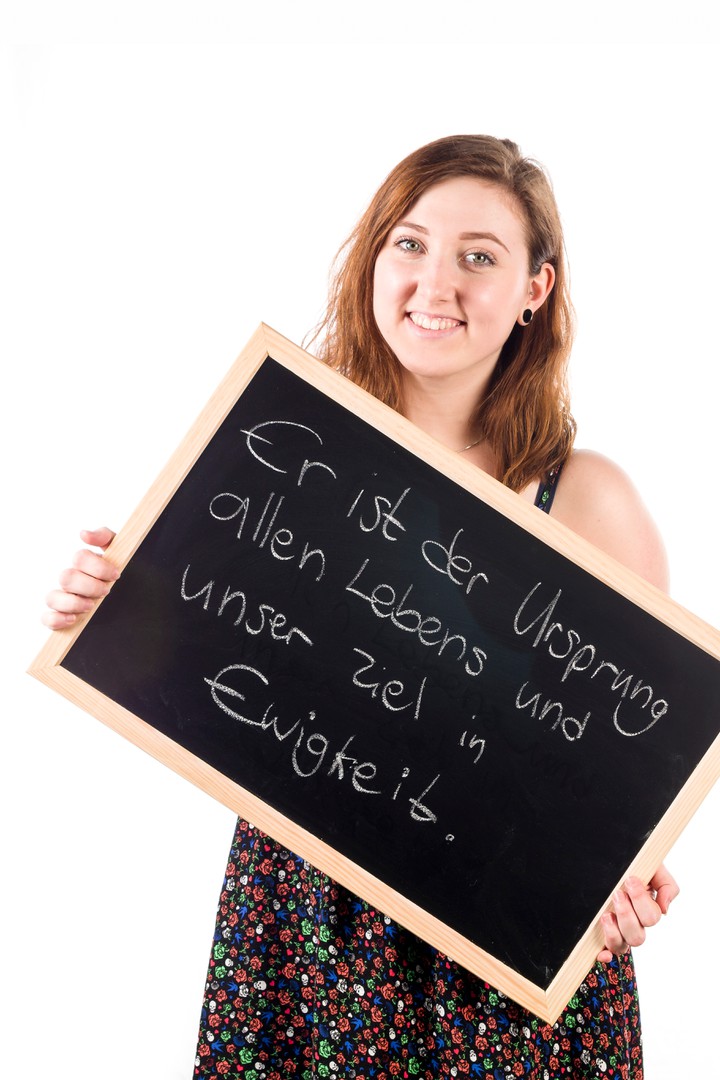 Er ist der Ursprung
allen Lebens und
unser ziel in
Ewigkeit.